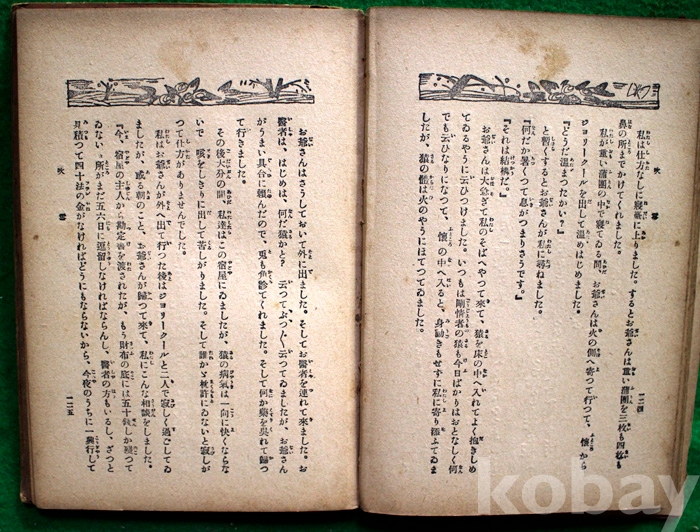 私は仕方なしに寢臺に上りました。するとお爺さんは重い蒲團を三枚も四枚も
鼻の所までかけてくれました。
私が重い蒲團の中で寢てゐる間、お爺さんは火の側へ寄つて行つて、懷から
ジヨリークールを出して温めはじめました。
『どうだ温まつたかい？』
と暫くするとお爺さんが私に尋ねました。
『何だか暑くつて息がつまりさうです。』
『それは結構だ。』
お爺さんは大急ぎで私のそばへやつて來て、猿を床の中へ入れてよく抱きしめ
てゐるやうに云ひつけました。いつもは剛情者の猿も今日ばかりはおとなしく何
でも云ひなりになつて、懷の中へ入ると、身動きもせずに私に寄り縋ふてゐま
したが、猿の體は火のやうにほてゐました。
一二四
お爺さんはさうしておいて外に出ました。そしてお醫者を連れて來ました。お
醫者は、はじめは、何だ猿かと？ 云つてぶつ〱云つてゐましたが、お爺さん
がうまい具合に頼んだので、兎も角診てくれました。そして何か藥を呉れて歸つ
て行きました。
その後大分の間、私達はこの宿屋にゐましたが、猿の病氣は一向に快くならな
いで 咳をしきりに出して苦しがりました。そして誰か 杖許にゐないと寂しが
つて仕方がありませんでした。
私はお爺さんが外へ出て行つた後はジヨリークールと二人で寂しく過してゐ
ましたが、或る朝のこと、お爺さんが歸つて來て、私にこんな相談をしました。
『今、宿屋の主人から勘定書を渡されたが、もう財布の底には五十錢しか殘つて
ゐない。所がまだ五六日逗留しなければならんし、醫者の方もいるし、ざつと
見積つて四十法の金がなければどうにもならないから、今夜のうちに一興行して
吹 雪
一二五
kobay